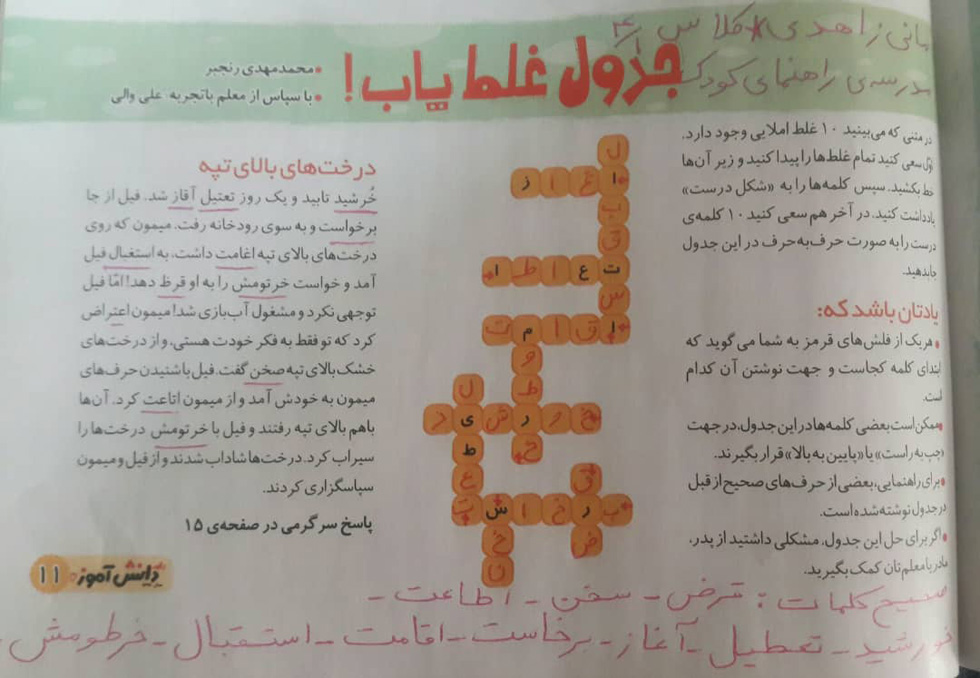 مانی زاهدی کلاس
مدرسه‌ی راهنمای کودک
جدول غلط یاب!
• محمدمهدی رنجبر
• با سپاس از معلم باتجربه: علی والی
در متنی که می‌بینید ۱۰ غلط املایی وجود دارد.
اوّل سعی کنید تمام غلط‌ها را پیدا کنید و زیر آن‌ها
خط بکشید. سپس کلمه‌ها را به «شکل درست»
یادداشت کنید. در آخر هم سعی کنید ۱۰ کلمه‌ی
درست را به صورت حرف‌به‌حرف در این جدول
جا بدهید.
یادتان باشد که:
• هریک از فلش‌های قرمز به شما می‌گوید که
ابتدای کلمه کجاست و جهت نوشتن آن کدام
است.
• ممکن است بعضی کلمه‌ها در این جدول، در جهت
«چپ به راست» یا «پایین به بالا» قرار بگیرند.
• برای راهنمایی، بعضی از حرف‌های صحیح از قبل
در جدول نوشته شده است.
• اگر برای حل این جدول، مشکلی داشتید از پدر،
مادر یا معلم‌تان کمک بگیرید.
ل
ا غ ا ز
ب
ق
ت ع ا ط ا
س
ا ق ا م ت
و
ل ط
خ و ر ش ی د
ط خ
ع ق
ب ر خ ا س ت
خ ض
ن
درخت‌های بالای تپه
خُرشید تابید و یک روز تعتیل آقاز شد. فیل از جا
برخواست و به سوی رودخانه رفت. میمون که روی
درخت‌های بالای تپه اغامت داشت، به استغبال فیل
آمد و خواست خرتومش را به او قرظ دهد! امّا فیل
توجهی نکرد و مشغول آب‌بازی شد! میمون اعتراض
کرد که تو فقط به فکر خودت هستی، و از درخت‌های
خشک بالای تپه صخن گفت. فیل با شنیدن حرف‌های
میمون به خودش آمد و از میمون اتاعت کرد. آن‌ها
باهم بالای تپه رفتند و فیل با خرتومش درخت‌ها را
سیراب کرد. درخت‌ها شاداب شدند و از فیل و میمون
سپاسگزاری کردند.
پاسخ سرگرمی در صفحه‌ی ۱۵
دانش آموز ۱۱
صحیح کلمات: قرض - سخن - اطاعت -
خورشید - تعطیل - آغاز - برخاست - اقامت - استقبال - خرطومش